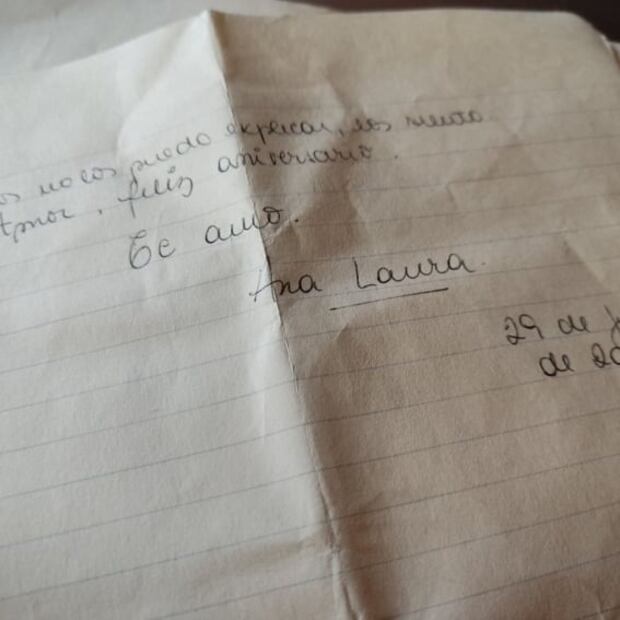 os no los puedo explicar, los siento
Amor, feliz aniversario.
Te amo.
Ana Laura.
29 de J
de 20